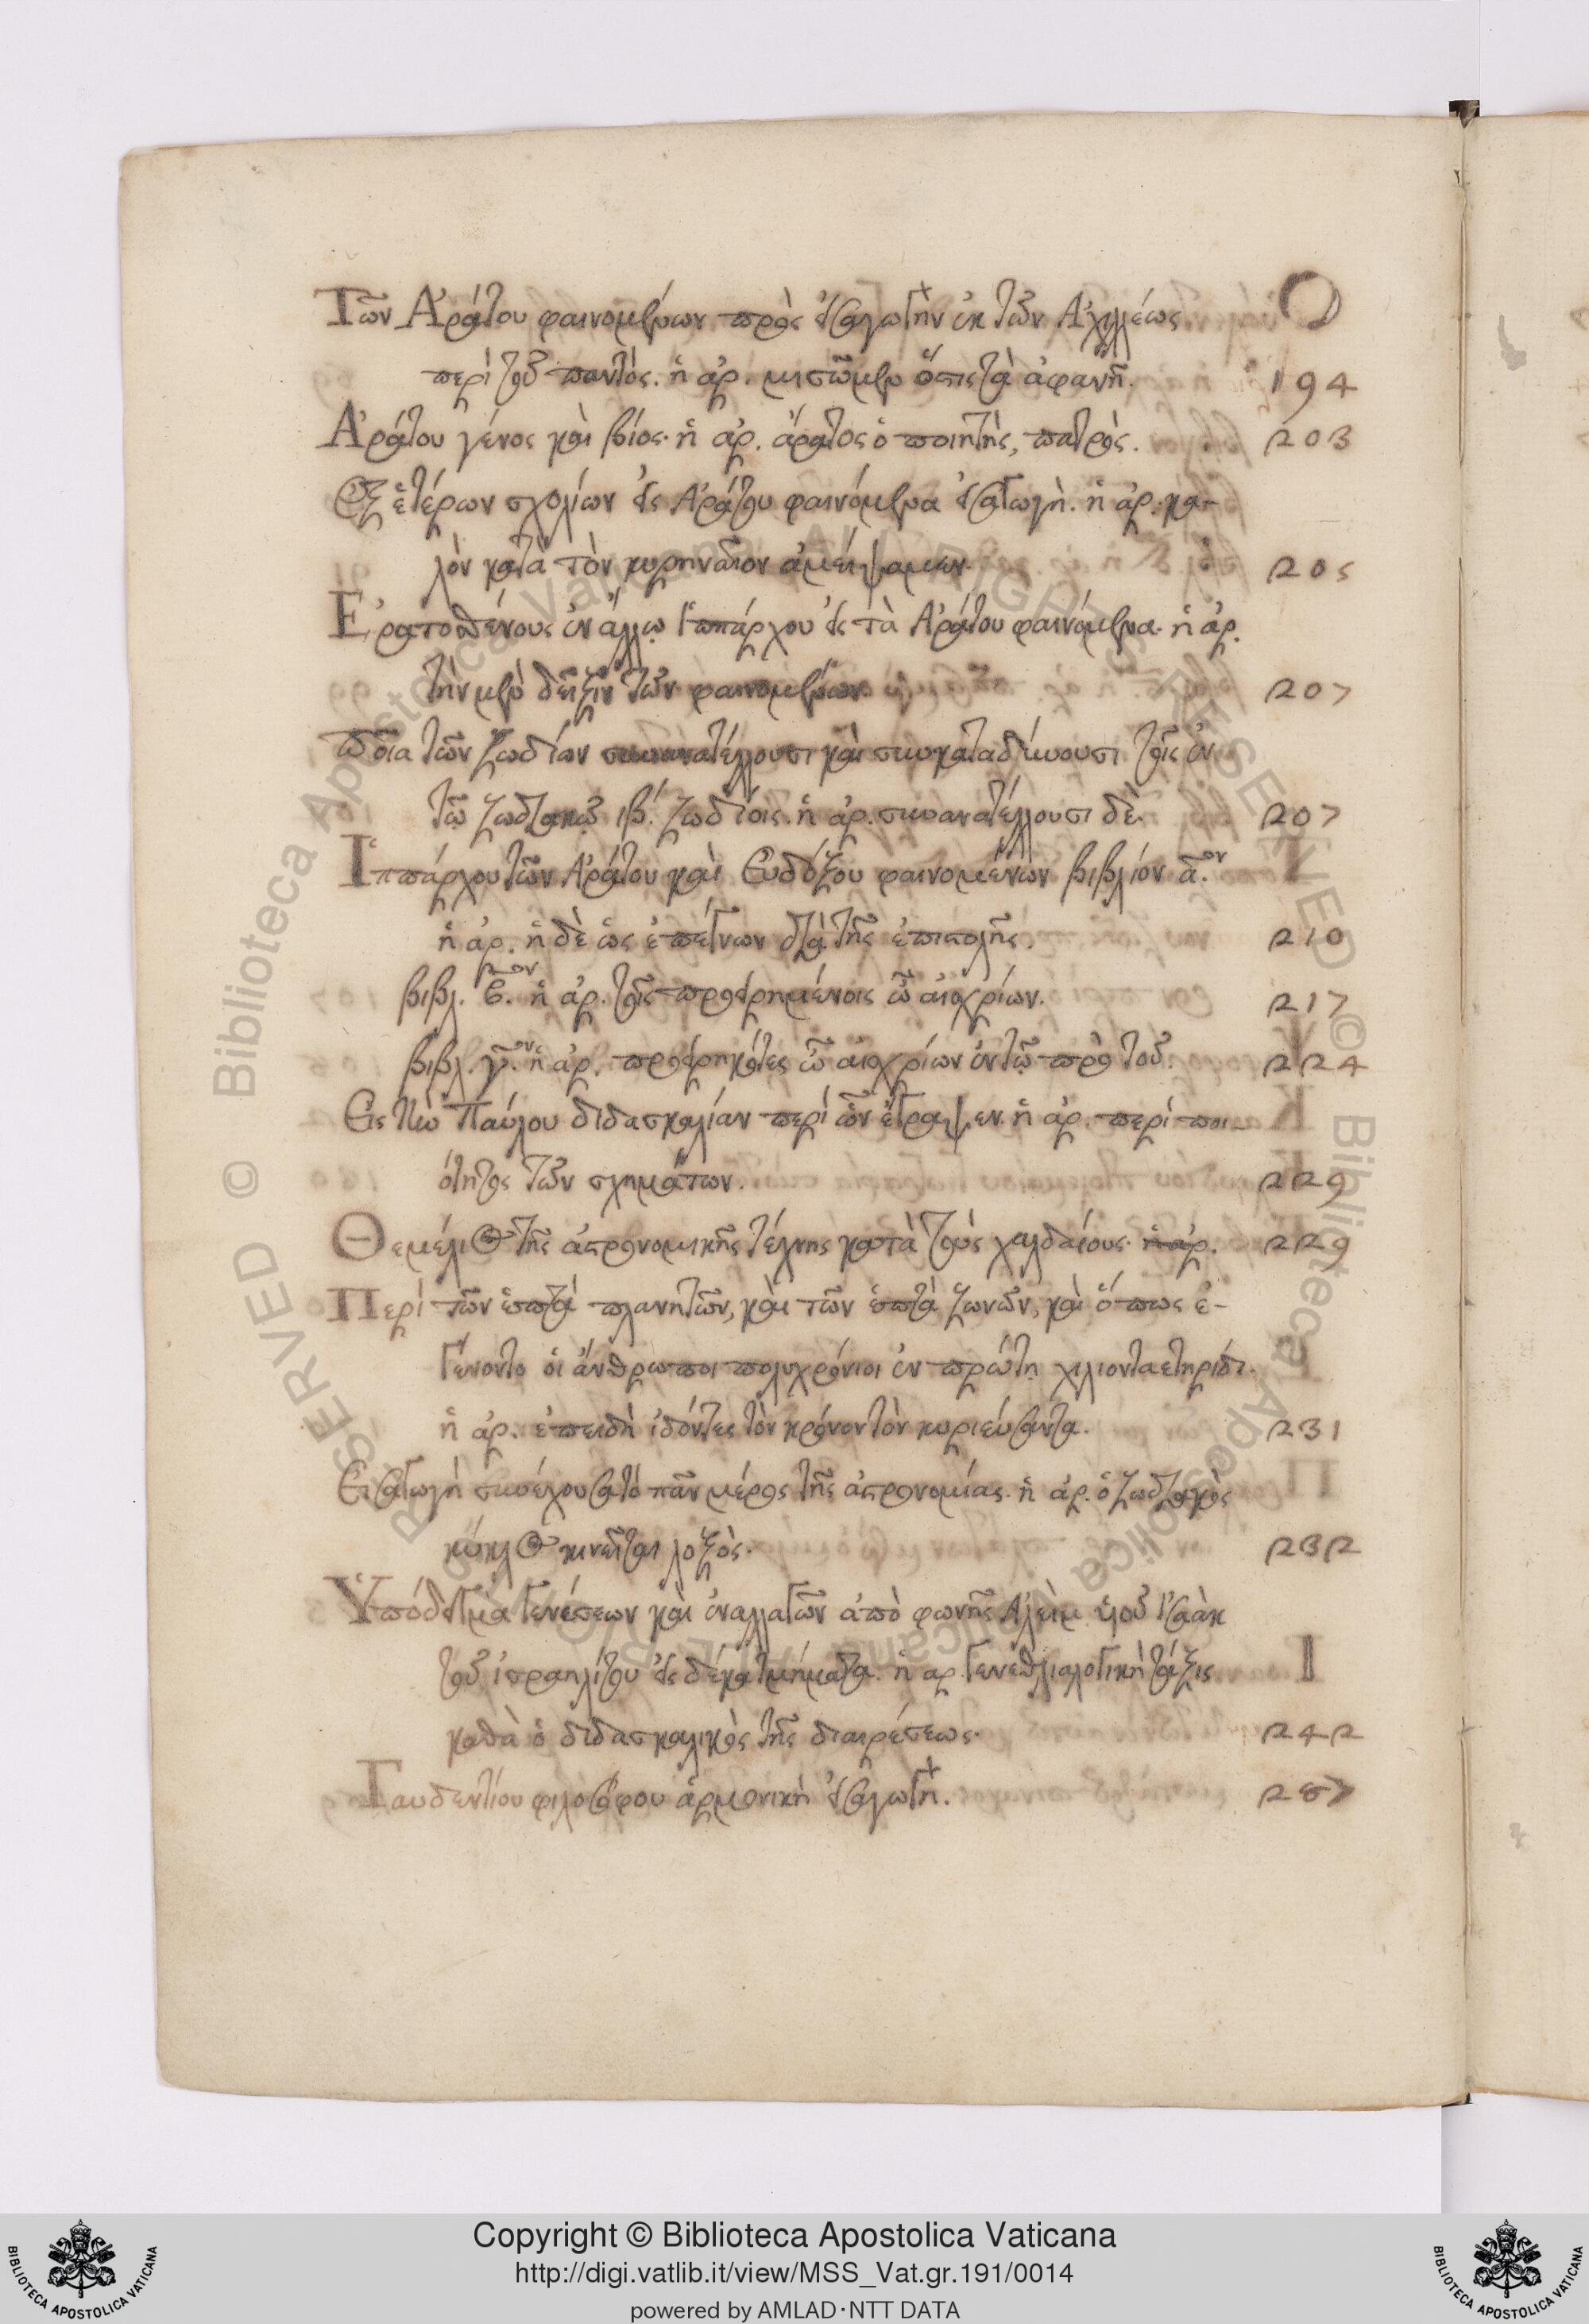 Τῶν Ἀράτου φαινομένων πρὸς εἰσαγωγὴν ἐκ τῶν Ἀχιλλέως
περὶ τοῦ παντός. ἡ ἀρ. ὅτι τὰ ἀφανῆ. 194
Ἀράτου γένος καὶ βίος. ἡ ἀρ. ἄρατος ὁ ποιητὴς, πατρὸς. 203
Ἐξ ἑτέρων σχολίων εἰς Ἀράτου φαινόμενα εἰσαγωγὴ. ἡ ἀρ. κα-
λὸν κατὰ τὸν κυρηναῖον ἀμείψαμεν. 205
Ἐρατοσθένους ἐν ἄλλῳ Ἱππάρχου εἰς τὰ Ἀράτου φαινόμενα. ἡ ἀρ.
τὴν μὲν δεῖξιν τῶν φαινομένων 207
Ποῖα τῶν ζωδίων συνανατέλλουσι καὶ συγκαταδύνουσι τοῖς ἐν
τῷ ζωδιακῷ ιβ. ζωδίοις. ἡ ἀρ. συνανατέλλουσι δὲ. 207
Ἱππάρχου τῶν Ἀράτου καὶ Εὐδόξου φαινομένων βιβλίον α.ον
ἡ ἀρ. ἡ δὲ ὡς ἐπείγων διὰ τῆς ἐπιστολῆς. 210
βιβλ. β.ον ἡ ἀρ. τοῖς προειρημένοις ὦ αἰσχρίων. 217
βιβλ. γ.ον ἡ ἀρ. προειρηκότες ὦ αἰσχρίων ἐν τῷ πρὸ τοῦ. 224
Εἰς τὴν Παύλου διδασκαλίαν περὶ ὧν ἔγραψεν. ἡ ἀρ. περὶ ποι-
ότητος τῶν σχημάτων. 229
Θεμέλιος τῆς ἀστρονομικῆς τέχνης κατὰ τοὺς χαλδαίους. ἡ ἀρ. 229
Περὶ τῶν ἑπτὰ πλανητῶν, καὶ τῶν ἑπτὰ ζωνῶν, καὶ ὅπως ἐ-
γένοντο οἱ ἄνθρωποι πολυχρόνιοι ἐν πρώτῃ χιλιονταετηρίδι.
ἡ ἀρ. ἐπειδὴ ἰδόντες τὸν κρόνον τὸν κυριεύσαντα. 231
Εἰσαγωγὴ συνέχουσα τὸ πᾶν μέρος τῆς ἀστρονομίας. ἡ ἀρ. ὁ ζωδιακὸς
κύκλος κινεῖται λοξὸς. 232
Ὑπόδειγμα γενέσεων καὶ ἐναλλαγῶν ἀπὸ φωνῆς Ἀλεὶμ υἱοῦ Ἰσαὰκ
τοῦ ἰσραηλίτου εἰς δέκα τμήματα. ἡ αρ. γενεθλιαλογικὴ τάξις
καθὰ ὁ διδασκαλικὸς τῆς διαιρέσεως. 242
Γαυδεντίου φιλοσόφου ἁρμονικὴ εἰσαγωγή.
© Biblioteca Apostolica Vaticana ALL RIGHTS RESERVED
Copyright © Biblioteca Apostolica Vaticana
http://digi.vatlib.it/view/MSS_Vat.gr.191/0014
powered by AMLAD·NTT DATA
BIBLIOTECA APOSTOLICA VATICANA
BIBLIOTECA APOSTOLICA VATICANA